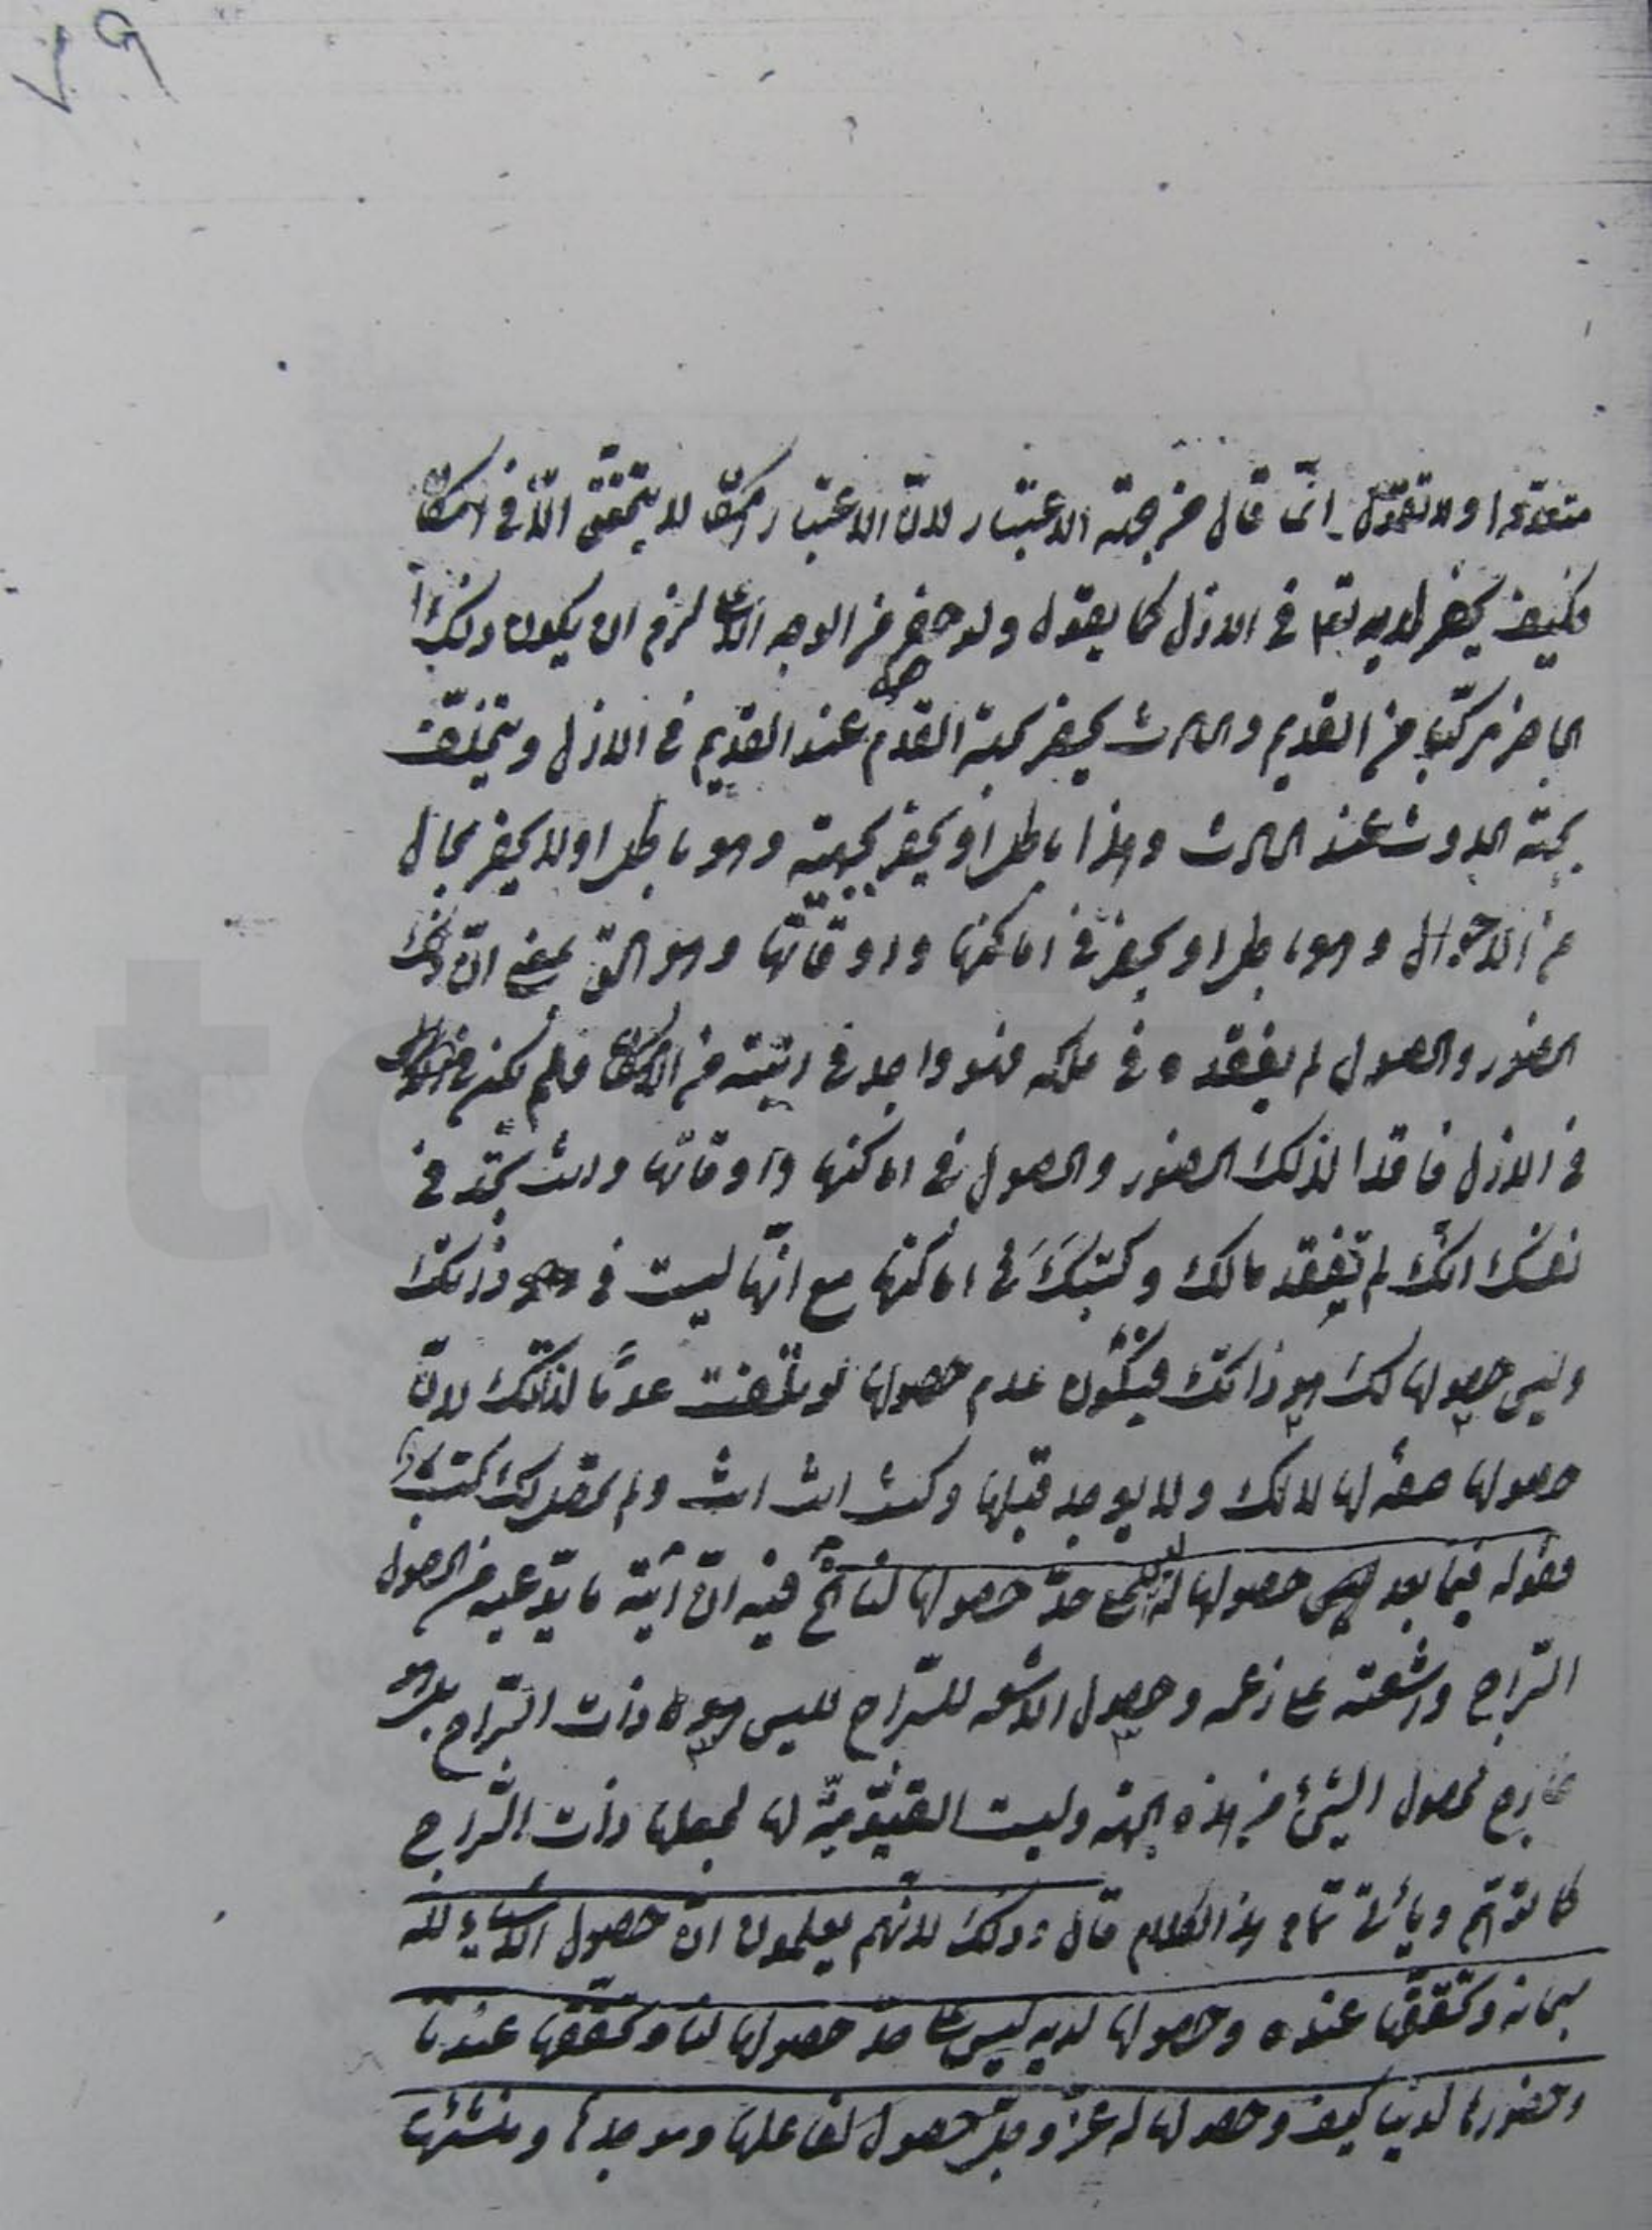 متعددا ولا تقول انما قال من جهة الاعتبار لان الاعتبار ممكن لا يتحقق الا في امكان
فكيف يحضر لديه تع في الازل كما يقول ولو حضر من الوجه لزم ان يكون ذلك
الحاضر مركبا من القديم والحادث يحضر بجهة القدم عند القديم في الازل ويتخلف
بجهة الحدوث عند الحادث وهذا باطل او يحضر بجهتيه وهو باطل او لا يحضر بحال
من الاحوال وهو باطل او يحضر في اماكنها واوقاتها وهو الحق بمعنى ان ذلك
الحضور والحصول لم يفقده في ملكه فهو واجد في رتبته من الامكان فلم يكن
في الازل فاقدا لذلك الحضور والحصول في اماكنها واوقاتها وانت تجد في
نفسك انك لم تفقد مالك وكتبك في اماكنها مع انها ليست في ذاتك
وليس حصولها لك هو ذاتك فيكون عدم حصولها لو تلفت عدما لذاتك لان
حصولها صفة لها لا لك ولا يوجد قبلها وكنت انت انت ولم تحصل لك كتب
فقوله فيما بعد حصولها له على حد حصولها لنا الخ فيه ان آية ما يدعيه من الحصول
السراج واشعته على زعمه وحصول الاشعه للسراج ليس هو ذات السراج بل هو
خارج كحصول الشئ من هذه الجهة وليست القيومية لها لجعلها ذات السراج
كما توهم ويأتي تمام هذا الكلام قال وذلك لانهم يعلمون ان حصول الاشياء لله
سبحانه وتحققها عنده وحصولها لديه ليس على حد حصولها لنا وتحققها عندنا
وحضورها لدينا كيف وحصولها له عز وجل حصول لفاعلها وموجدها ومنشئها